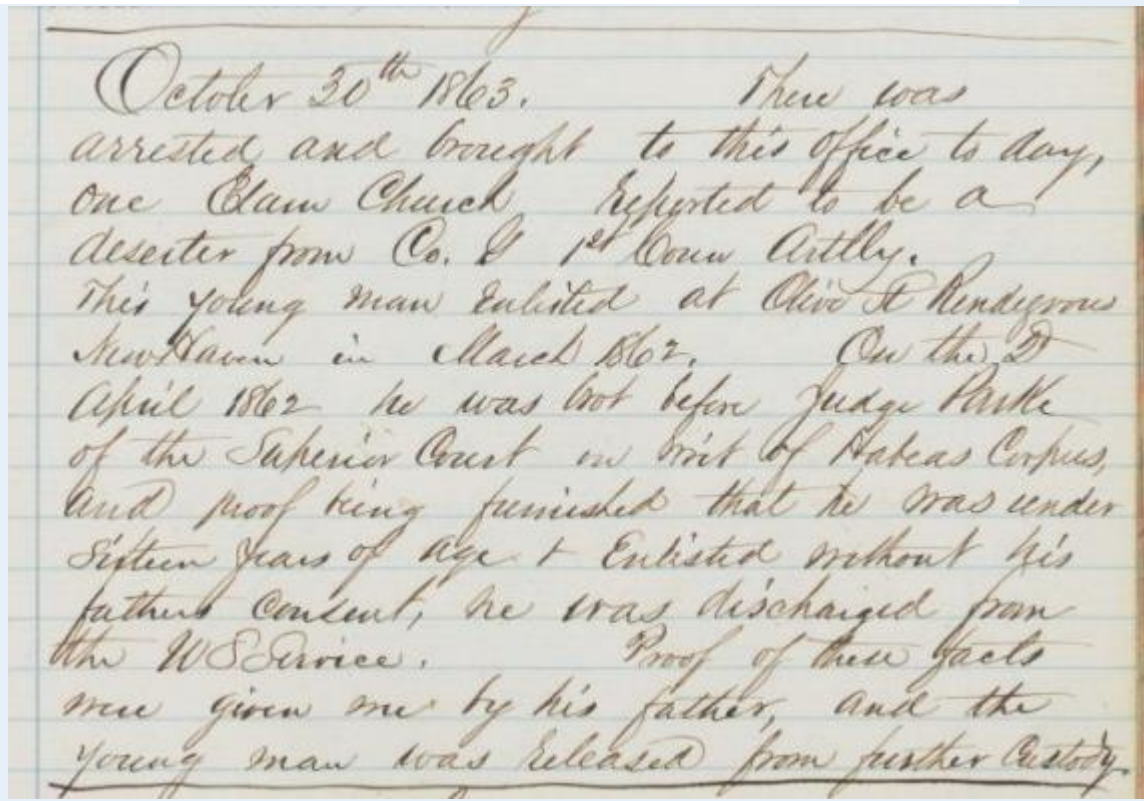 October 30th 1863. There was
arrested and brought to this office to day,
one Elam Church Reported to be a
deserter from Co. G 1st Conn Artlly.
This young man Enlisted at Olive St Rendezvous
New Haven in March 1862. On the 2d
April 1862 he was brot before Judge Parke
of the Superior Court on Writ of Habeas Corpus,
and proof being furnished that he was under
Sixteen years of age & Enlisted without his
fathers Consent, he was discharged from
the U S Service. Proof of these facts
were given me by his father, and the
young man was released from further Custody.